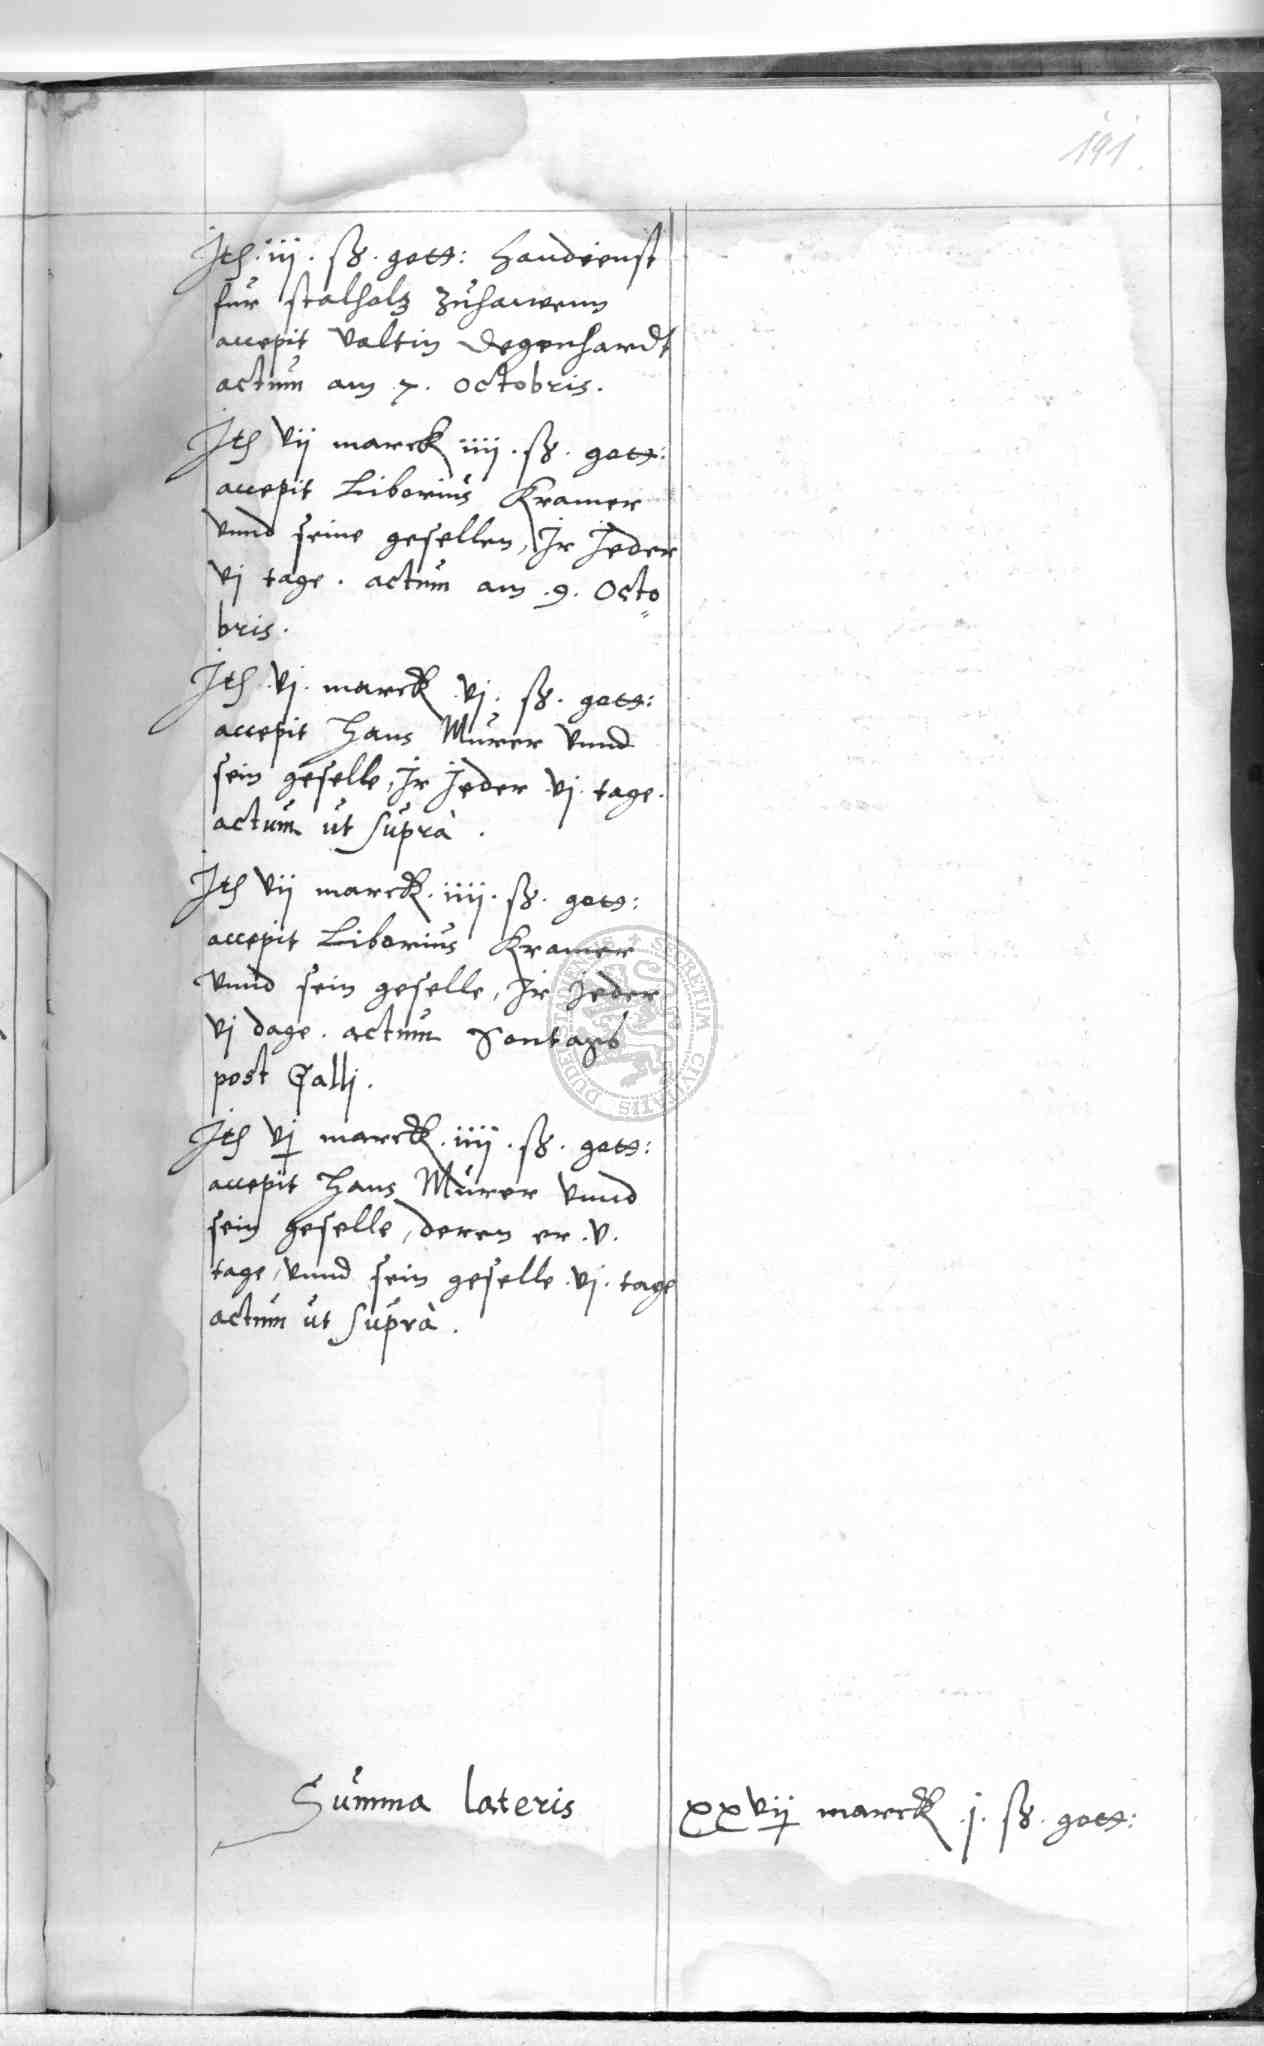 191.
Ith .iij. ß. gott: Handienst
fur stalholtz zuhawenn
accepit Valtin Degenhardt
actum am .7. Octobris.
Ith vij marck iiij. ß. gott:
accepit Liborius Kramer
vnnd seine gesellen, Ir Jeder
vj tage. actum am .9. Octo
bris.
Ith .vj. marck .vj. ß. gott:
accepit Hans Murer vnnd
sein geselle, Ir Jeder .vj. tage.
actum ut suprà.
Ith vij marck .iiij. ß. gott:
accepit Liborius Kramer
vnnd sein geselle, Ir Jeder
vj dage. actum Sontags
post Galli.
Ith vj marck .iiij. ß. gott:
accepit Hans Murer vnnd
sein geselle, deren er .v.
tage, vnnd sein geselle .vj. tage
actum ut suprà.
Summa lateris xxvij marck .j. ß. gott:
SECRETUM CIVITATIS DUDERSTADENSIS